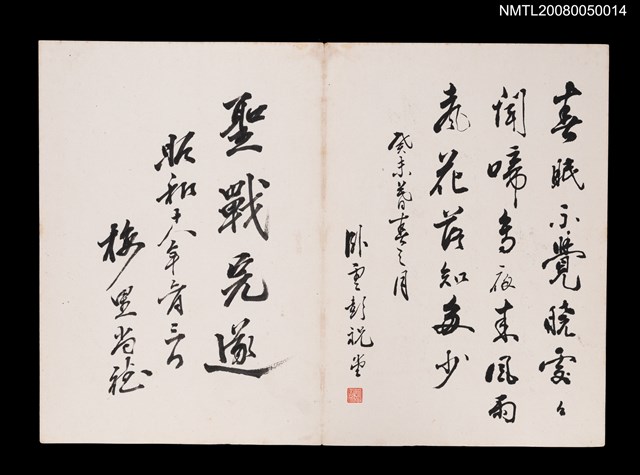 NMTL20080050014
春眠不覺曉處々
聞啼鳥夜來風雨
聲花落知多少
癸未暮春之月
臥雲彭祝堂
聖戰完遂
昭和十八年
梅里尚